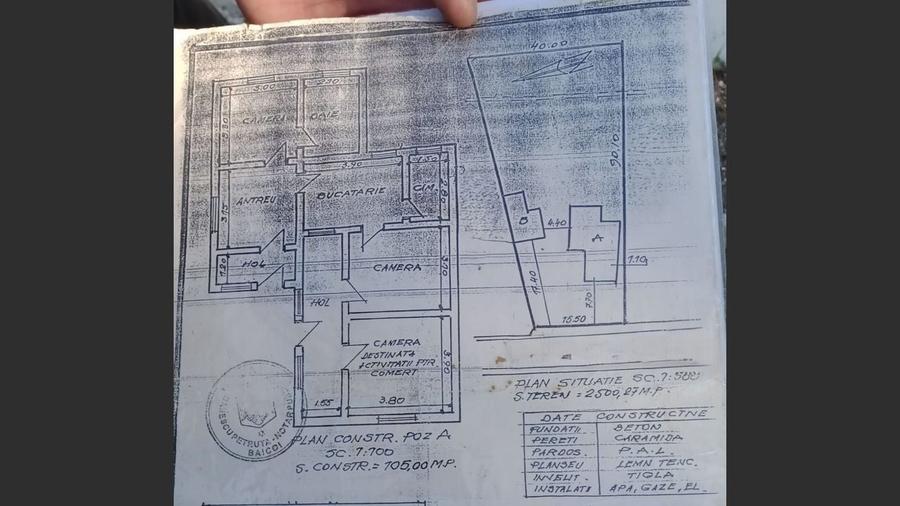 40.00
3.00
CAMERA
BAIE
3.90
1.50
ANTREU
BUCATARIE
CAM.
2.80
3.15
1.20
HOL
HOL
CAMERA
3.70
CAMERA
DESTINATA
ACTIVITATII PTR.
COMERT
3.90
1.55
3.80
PLAN CONSTR. POZ A
SC. 1:100
S. CONSTR. = 105,00 M.P.
BAICOI
90.10
B
4.40
A
1.10
17.40
7.70
15.50
PLAN SITUATIE SC. 1:500
S. TEREN = 2500,27 M.P.
DATE CONSTRUCTIVE
FUNDATII. BETON
PERETI CARAMIDA
PARDOS. P.A.L.
PLANSEU LEMN TENC.
INVELIT. TIGLA
INSTALATII APA, GAZE, EL.